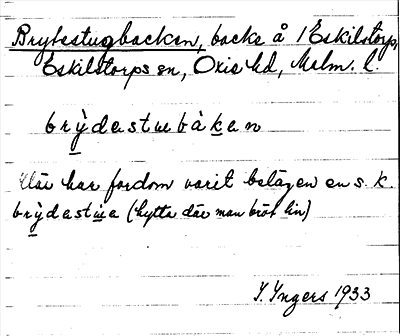 Brydestugbacken, backe å 1 Eskilstorp,
Eskilstorps sn, Oxie hd, Malm. l.
brỳdastuebàkan
Här har fordom varit belägen en s. k.
brỳdastua (hytta där man bröt lin)
I. Yngers 1933